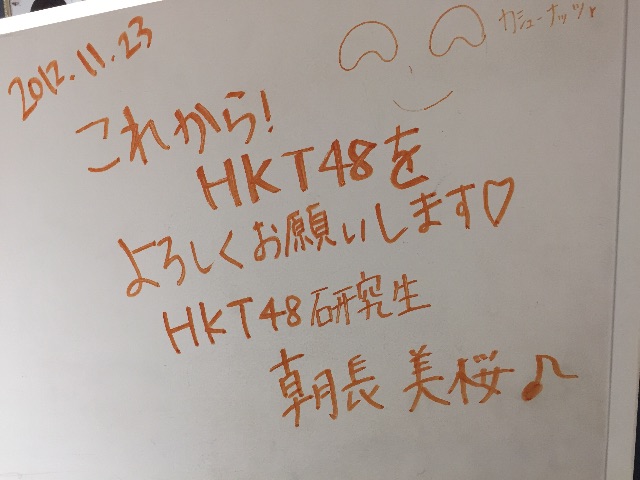 2012.11.23
カシューナッツ
これから!
HKT48を
よろしくお願いします♡
HKT48研究生
朝長美桜♪